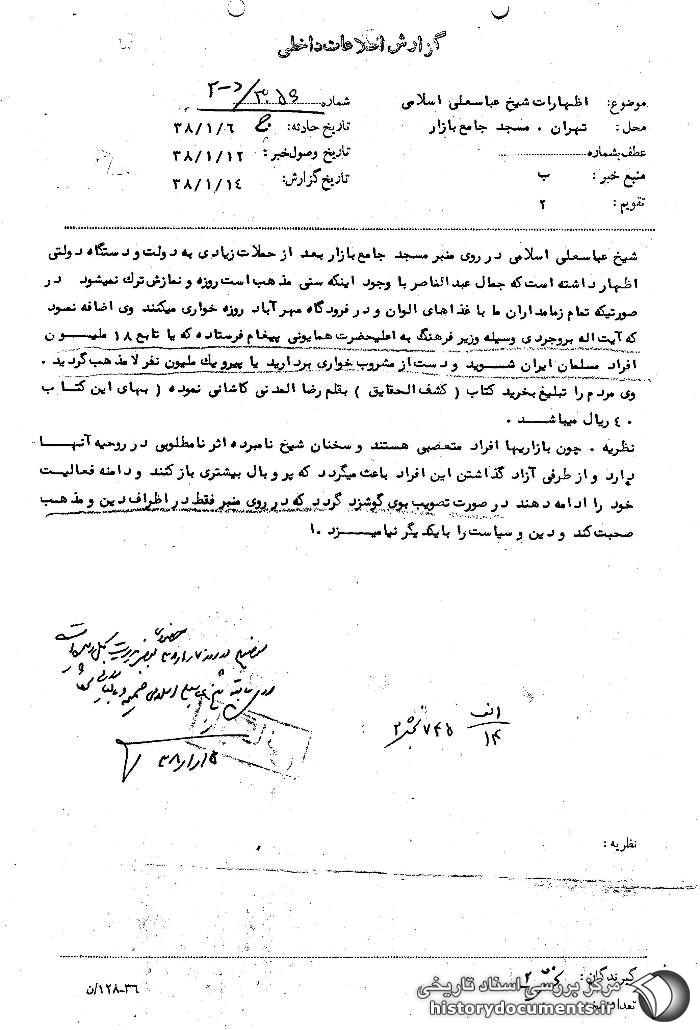 گزارش اطلاعات داخلی
موضوع: اظهارات شیخ عباسعلی اسلامی
شماره
محل: تهران . مسجد جامع بازار
تاریخ حادثه: ۳۸/۱/۶
عطف بشماره
تاریخ وصول خبر: ۳۸/۱/۱۲
منبع خبر: ب
تاریخ گزارش: ۳۸/۱/۱۴
تقویم: ۲
شیخ عباسعلی اسلامی در روی منبر مسجد جامع بازار بعد از حملات زیادی به دولت و دستگاه دولتی
اظهار داشته است که جمال عبدالناصر با وجود اینکه سنی مذهب است روزه و نمازش ترک نمیشود در
صورتیکه تمام زمامداران ما با غذاهای الوان و در فرودگاه مهرآباد روزه خواری میکنند وی اضافه نمود
که آیت اله بروجردی وسیله وزیر فرهنگ به اعلیحضرت همایونی پیغام فرستاده که یا تابع ۱۸ ملیـــون
افراد مسلمان ایران شـوید و دست از مشروب خواری بردارید یا پیرو یک ملیون نفر لا مذهب گردید .
وی مردم را تبلیغ بخرید کتاب ( کشف الحقایق ) بقلم رضا المدنی کاشانی نموده ( بهای این کتـاب
۴۰ ریال میباشـد .
نظریه . چون بازاریها افراد متعصبی هستند و سخنان شیخ نامبرده اثر نامطلوبی در روحیه آنهـا
دارد و از طرفی آزاد گذاشتن این افراد باعث میگردد که پر و بال بیشتری باز کنند و دامنه فعالیت
خود را ادامه دهند در صورت تصویب بوی گوشزد گردد که در روی منبر فقط در اطراف دین و مذهب
صحبت کند و دین و سیاست را با یکدیگر نیامیـــزد .۱
الف
۱۴
نظریه :
گیرندگان :
۱۲۸-۳۶/ن
مرکز بررسی اسناد تاریخی
historydocuments.ir